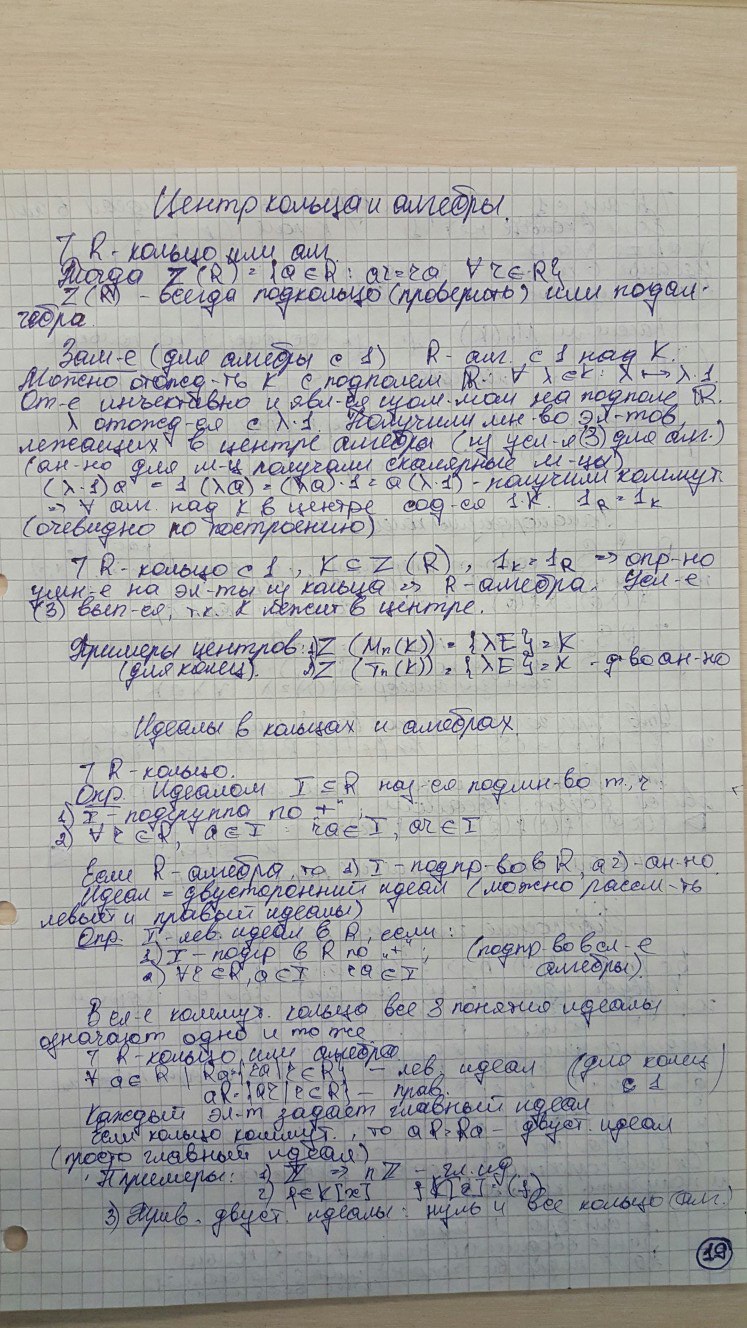 Центр кольца и алгебры.
] R - кольцо или алг.
Тогда Z(R) = {a ∈ R : ar = ra ∀ r ∈ R}
Z(R) - всегда подкольцо (проверить) или подал-
гебра.
Зам-е (для алгебры с 1) R - алг. с 1 над K.
Можно отожд-ть K с подполем R: ∀ λ ∈ K: λ ↦ λ·1
От-е инъективно и явл-ся изом-мом на подполе R.
λ отожд-ся с λ·1. Получили мн-во эл-тов,
лежащих в центре алгебры (из усл-я (3) для алг.)
(ан-но для м-ц получали скалярные м-цы)
(λ·1)a = 1(λa) = (λa)·1 = a(λ·1) - получили коммут.
⇒ ∀ алг. над K в центре сод-ся 1·K. 1_R = 1_K
(очевидно по построению)
] R - кольцо с 1, K ⊆ Z(R), 1_K = 1_R ⇒ опр-но
умн-е на эл-ты из кольца ⇒ R - алгебра. Усл-е
(3) вып-ся, т.к. K лежит в центре.
Примеры центров: 1) Z(Mn(K)) = {λE} = K
(для колец). 2) Z(Tn(K)) = {λE} = K - д-во ан-но
Идеалы в кольцах и алгебрах.
] R - кольцо.
Опр. Идеалом I ⊆ R наз-ся подмн-во т.ч.
1) I - подгруппа по "+";
2) ∀ r ∈ R, a ∈ I : ra ∈ I, ar ∈ I
Если R - алгебра, то 1) I - подпр-во в R, а 2) - ан-но.
Идеал = двусторонний идеал (можно рассм-ть
левый и правый идеалы)
Опр. I - лев. идеал в R, если:
1) I - подгр. в R по "+"; (подпр-во в сл-е
2) ∀ r ∈ R, a ∈ I : ra ∈ I алгебры)
В сл-е коммут. кольца все 3 понятия идеалы
означают одно и то же.
] R - кольцо или алгебра
∀ a ∈ R | Ra = {ra | r ∈ R} - лев. идеал (для колец
aR = {ar | r ∈ R} - прав. с 1)
Каждый эл-т задает главный идеал
Если кольцо коммут., то aR = Ra - двуст. идеал
(просто главный идеал)
Примеры: 1) Z ⇒ nZ - гл. ид.
2) f ∈ K[x] f K[x] = (f)
3) Трив. двуст. идеалы: нуль и все кольцо (алг.)
19